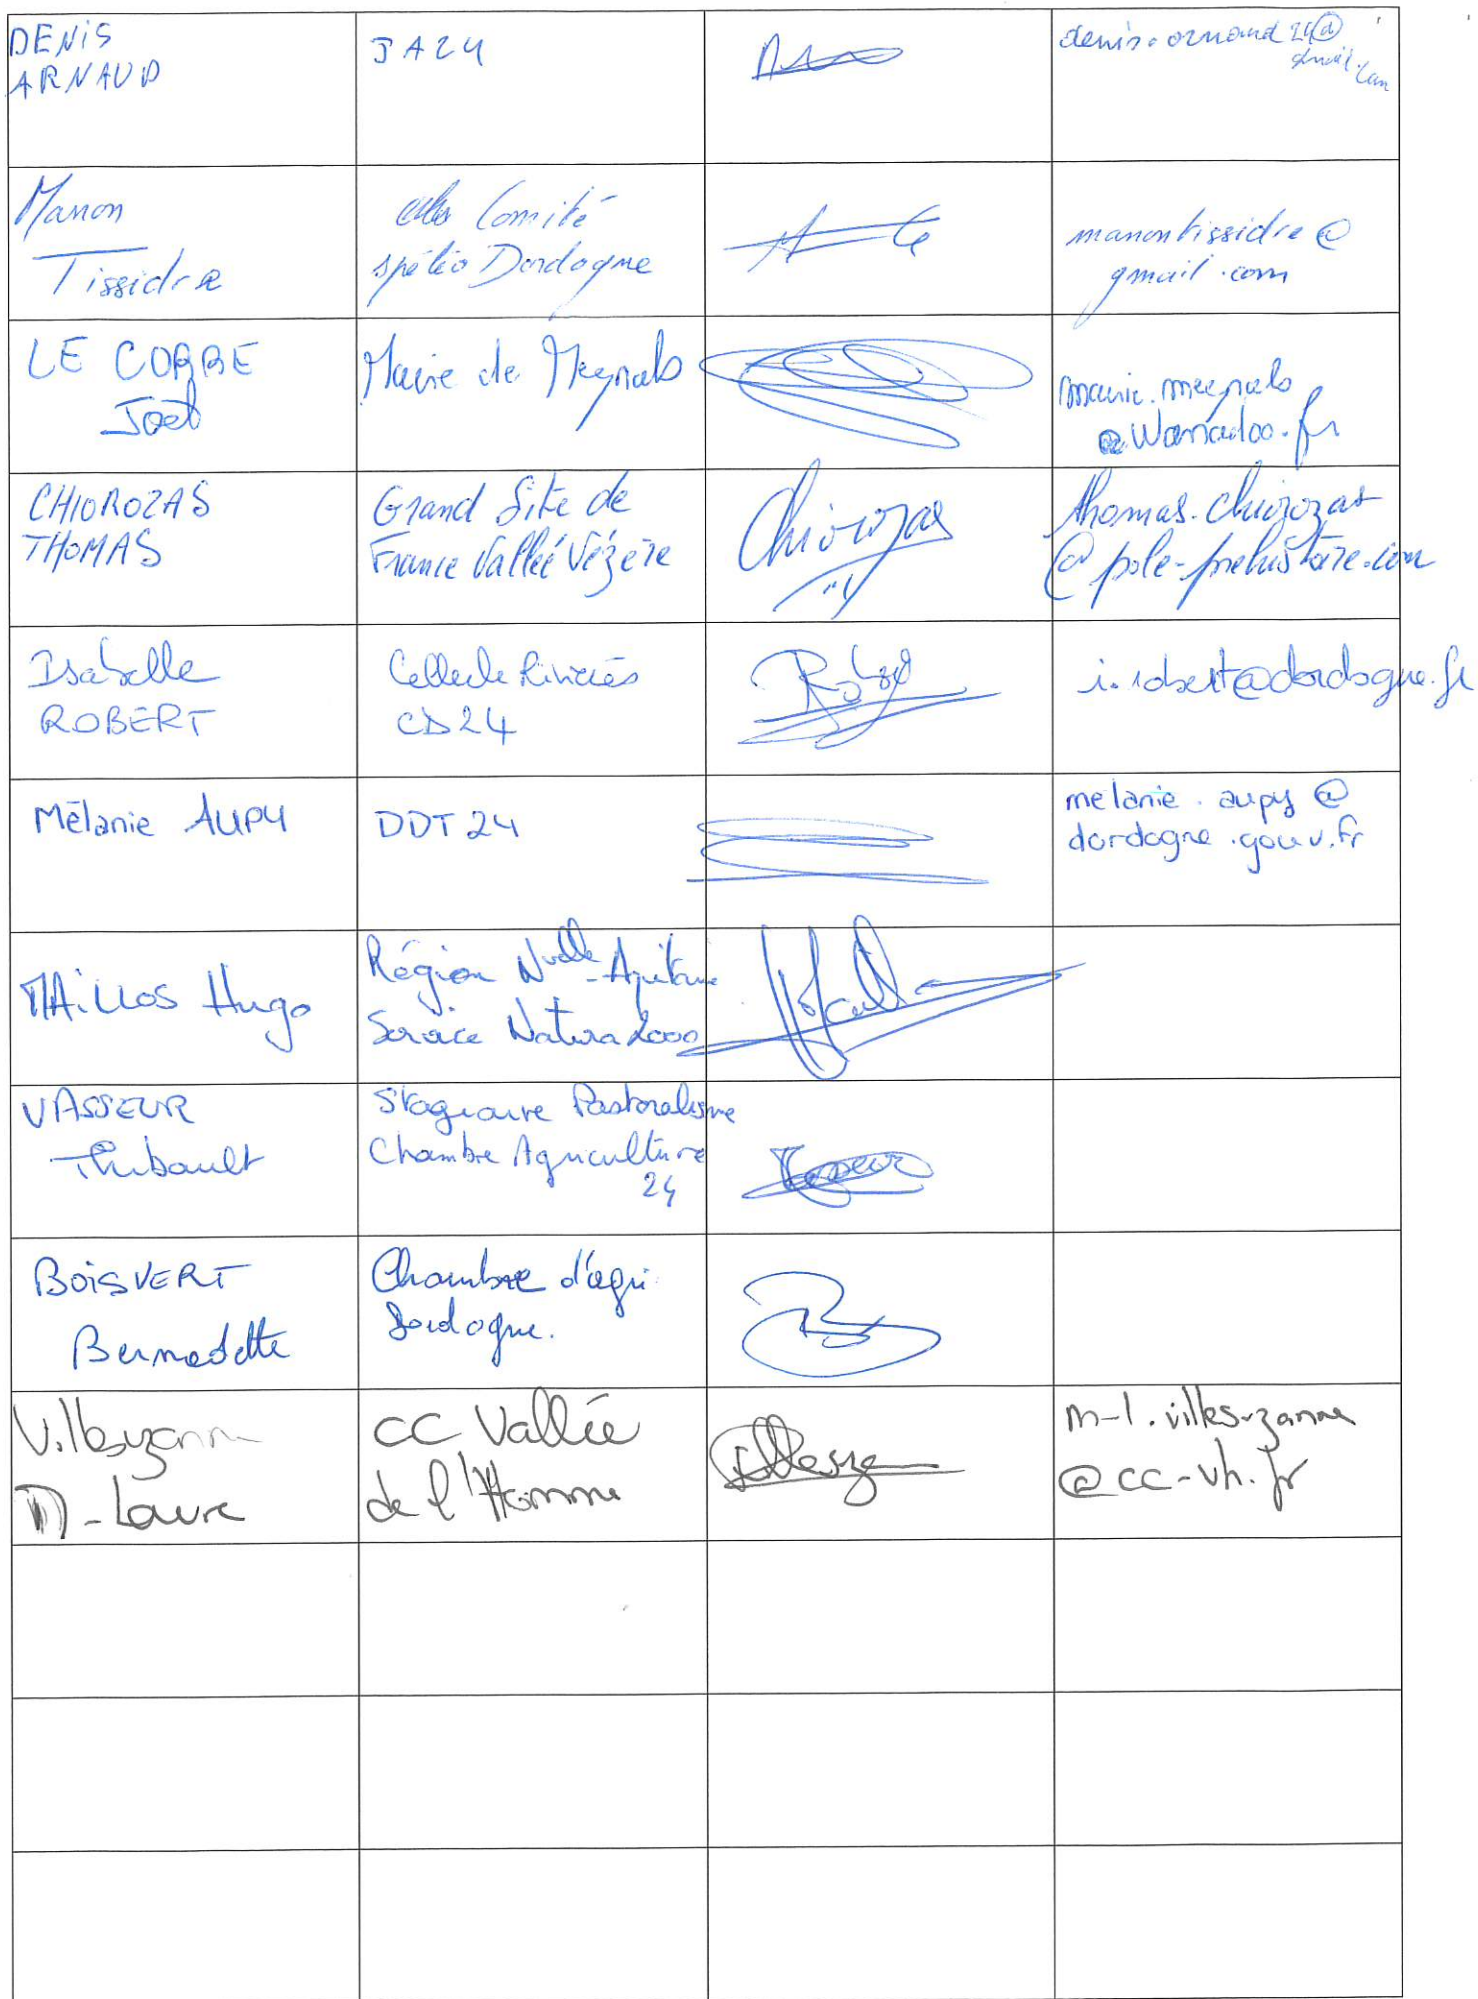 DENIS
ARNAUD
JA24
denis.arnaud24@
gmail.com
Manon
Tissidre
Comité
spéléo Dordogne
manontissidre@
gmail.com
LE CORRE
Joël
Mairie de Meyrals
mairie.meyrals
@wanadoo.fr
CHIOROZAS
THOMAS
Grand Site de
France Vallée Vézère
Chiorozas
thomas.chiorozas
@pole-prehistoire.com
Isabelle
ROBERT
Cellule Rivières
CD24
i.robert@dordogne.fr
Mélanie AUPY
DDT 24
melanie.aupy@
dordogne.gouv.fr
MAILLOS Hugo
Région Nvelle-Aquitaine
Service Natura 2000
VASSEUR
Thibault
Stagiaire Pastoralisme
Chambre Agriculture
24
BOISVERT
Bernadette
Chambre d'agri
Dordogne.
Villesuzanne
M-Laure
CC Vallée
de l'Homme
m-l.villesuzanne
@cc-vh.fr